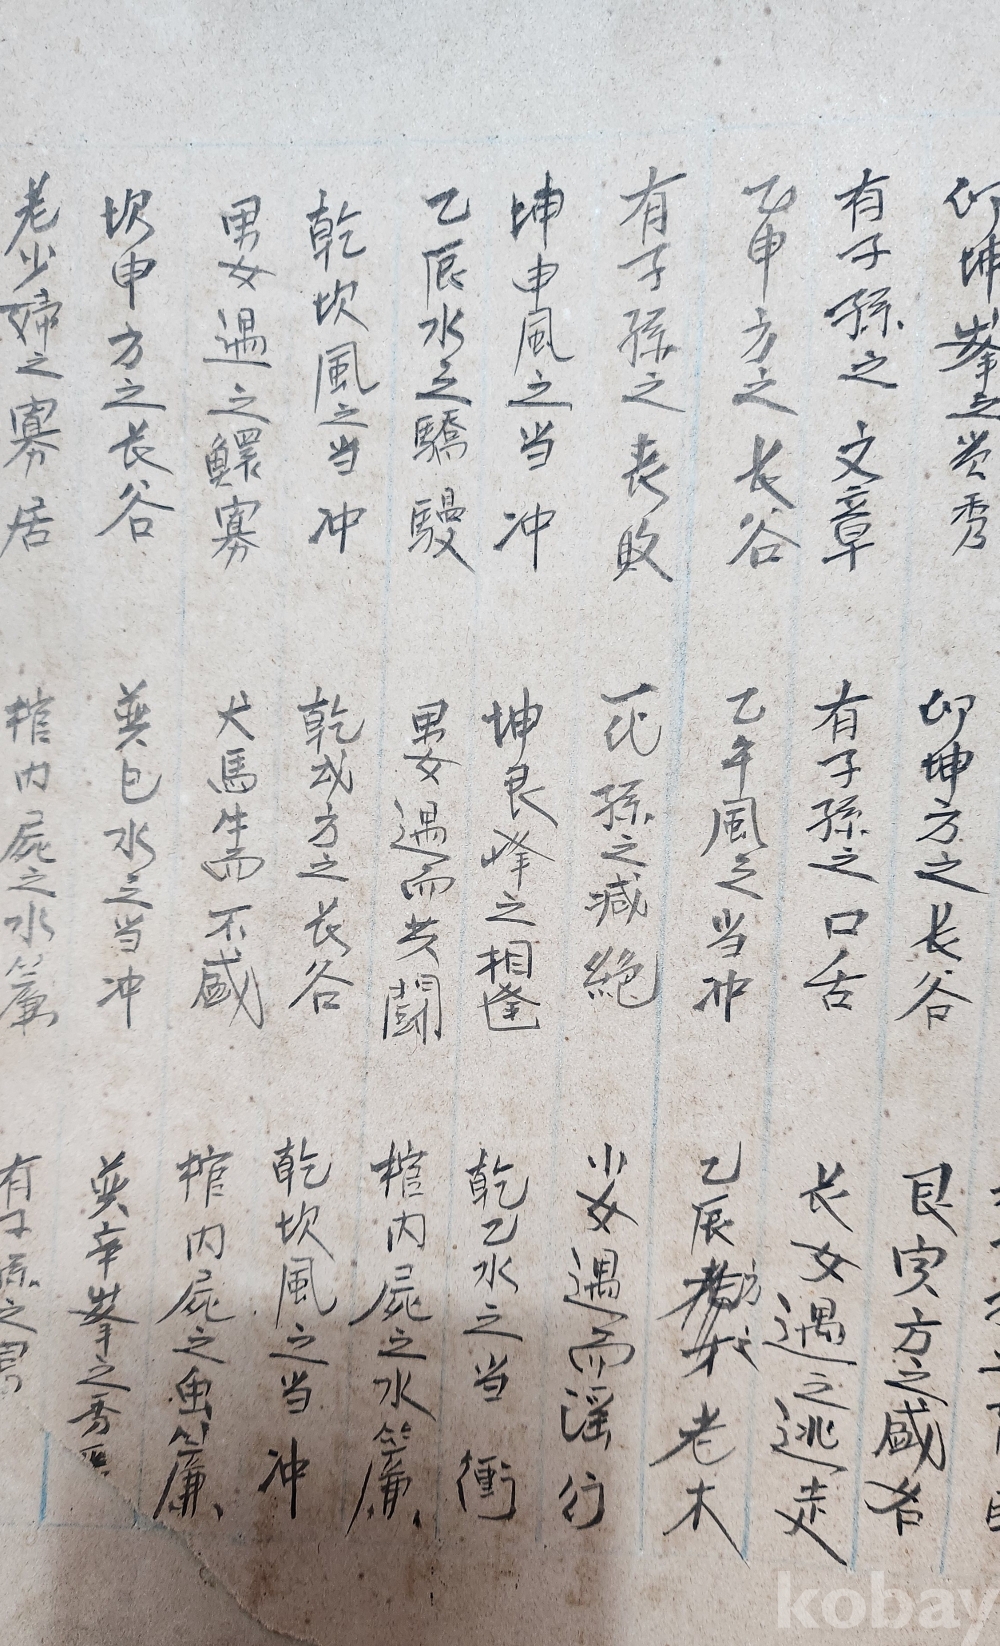 卯坤峯之贵秀
有子孫之文章
乙申方之长谷
有子孫之丧敗
坤申風之当冲
乙辰水之驕騣
乾坎風之当冲
男女遇之鰥寡
坎申方之长谷
老少婦之寡居
卯坤方之长谷
有子孫之口舌
乙午風之当冲
孫之减絶
坤艮峰之相逢
男女遇而共闘
乾戌方之长谷
犬馬生而不盛
巽巳水之当冲
棺内屍之水簾
艮寅方之盛
长女遇之逃走
乙辰方老木
少女遇而淫行
乾乙水之当衝
棺内屍之水簾
乾坎風之当冲
棺内屍之虫簾
巽辛峯之秀
有子孫之
kobay